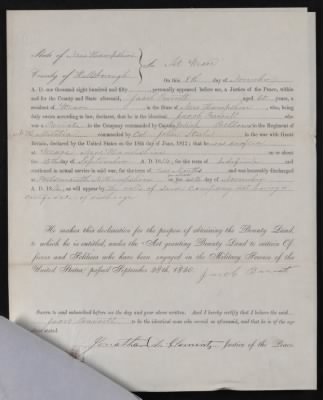 State of New Hampshire
County of Hillsborough } ss. At Weare
On this 8th day of November
A. D. one thousand eight hundred and fifty personally appeared before me, a Justice of the Peace, within
and for the County and State aforesaid, Jacob Barrett aged 60 years, a
resident of Weare in the State of New Hampshire who, being
duly sworn according to law, declares, that he is the identical Jacob Barrett
who was a Private in the Company commanded by Captain
commanded by Col. John Steele in the war with Great
Britain, declared by the United States on the 18th day of June, 1812; that he
at Weare New Hampshire on or about
the day of September A. D. 18 for the term of and
continued in actual service in said war, for the term of two months and was honorably discharged
at Portsmouth N. Hampshire on the day of November
A. D. 18 as will appear by the rolls of said Company not having a
certificate of discharge
He makes this declaration for the purpose of obtaining the Bounty Land
to which he is entitled, under the Act granting Bounty Land to certain Of-
ficers and Soldiers who have been engaged in the Military Service of the
United States, passed September 28th, 1850.
Jacob Barrett
Sworn to and subscribed before me the day and year above written. And I hereby certify that I believe the said
Jacob Barrett to be the identical man who served as aforesaid, and that he is of the age
above stated.
Jonathan Clement Justice of the Peace